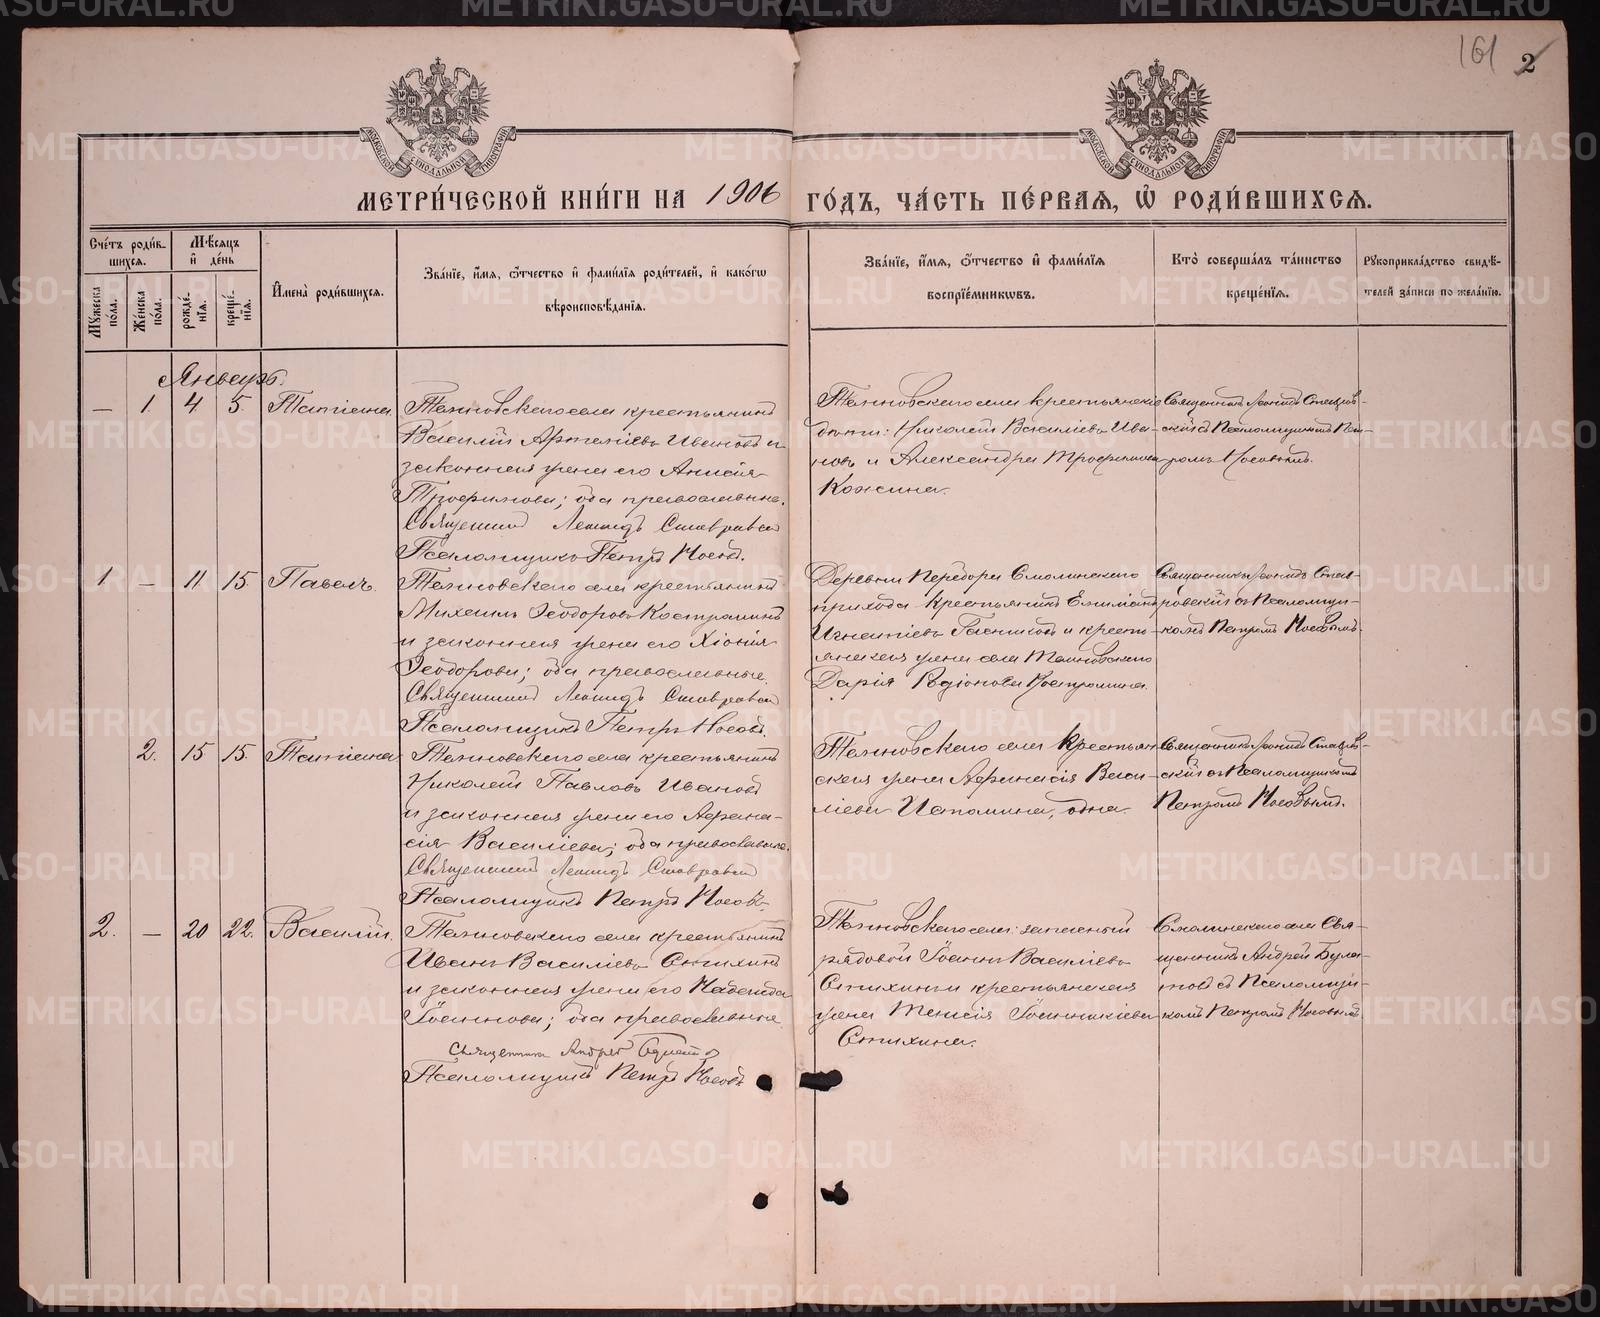 161 2
МОСКОВСКОЙ СѴНОДАЛЬНОЙ ТИПОГРАФІИ
МОСКОВСКОЙ СѴНОДАЛЬНОЙ ТИПОГРАФІИ
МЕТРИ́ЧЕСКОЙ КНИ́ГИ НА 1906 ГО́ДЪ, ЧА́СТЬ ПЕ́РВАѦ, Ѡ҆ РОДИ́ВШИХСѦ.
Счéтъ роди́в-
шихсѧ.
Мꙋ́жеска по́ла.
Же́нска по́ла.
Мѣ́сѧцъ
и҆ де́нь
рожде́-
нїѧ.
креще́-
нїѧ.
И҆мена̀ роди́вшихсѧ.
Зва́нїе, и҆́мѧ, ѻ҆́тчество и҆ фами́лїѧ роди́телей, и҆ како́гѡ
вѣроисповѣ́данїѧ.
Зва́нїе, и҆́мѧ, ѻ҆́тчество и҆ фами́лїѧ
воспрїе́мникѡвъ.
Кто̀ соверша́лъ та́инство
креще́нїѧ.
Рꙋкоприкла́дство свидѣ́-
телей за́писи по жела́нїю.
Январь.
— 1. 4 5. Татіана
села крестьянинъ
Василій Артеміевъ Ивановъ и
законная жена его Анисія
Трофимова; оба православные.
Священникъ Леонидъ Ставровскій
Псаломщикъ Петръ Носовъ.
села крестьянскіе
дѣти: Николай Васильевъ Ива-
новъ и Александра Трофимова
Кожина.
Священникъ Леонидъ Ставров-
скій съ Псаломщикомъ Пет-
ромъ Носовымъ.
1 — 11 15. Павелъ
села крестьянинъ
Михаилъ Ѳеодоровъ Костроминъ
и законная жена его Хіонія
Ѳеодорова; оба православные.
Священникъ Леонидъ Ставровскій
Псаломщикъ Петръ Носовъ.
Деревни Перебора Смолинскаго
прихода крестьянинъ
Игнатіевъ и кресть-
янская жена села
Дарія Родіонова Костромина.
Священникъ Леонидъ Став-
ровскій съ Псаломщи-
комъ Петромъ Носовымъ.
2. 15 15. Татіана
села крестьянинъ
Николай Павловъ Ивановъ
и законная жена его Аѳана-
сія Василіева; оба православные.
Священникъ Леонидъ Ставровскій
Псаломщикъ Петръ Носовъ.
села крестьян-
ская жена Аѳанасія Васи-
ліева Истомина, одна.
Священникъ Леонидъ Ставров-
скій съ Псаломщикомъ
Петромъ Носовымъ.
2. — 20 22. Василій.
села крестьянинъ
Иванъ Василіевъ Стихинъ
и законная жена его Надежда
Іоаннова; оба православные
Священникъ Андрей Булатовъ
Псаломщикъ Петръ Носовъ
села запасный
рядовой Іоаннъ Василіевъ
Стихинъ и крестьянская
жена Таисія Іоанникіева
Стихина.
Смолинскаго села Свя-
щенникъ Андрей Була-
товъ съ Псаломщи-
комъ Петромъ Носовымъ
METRIKI.GASO-URAL.RU